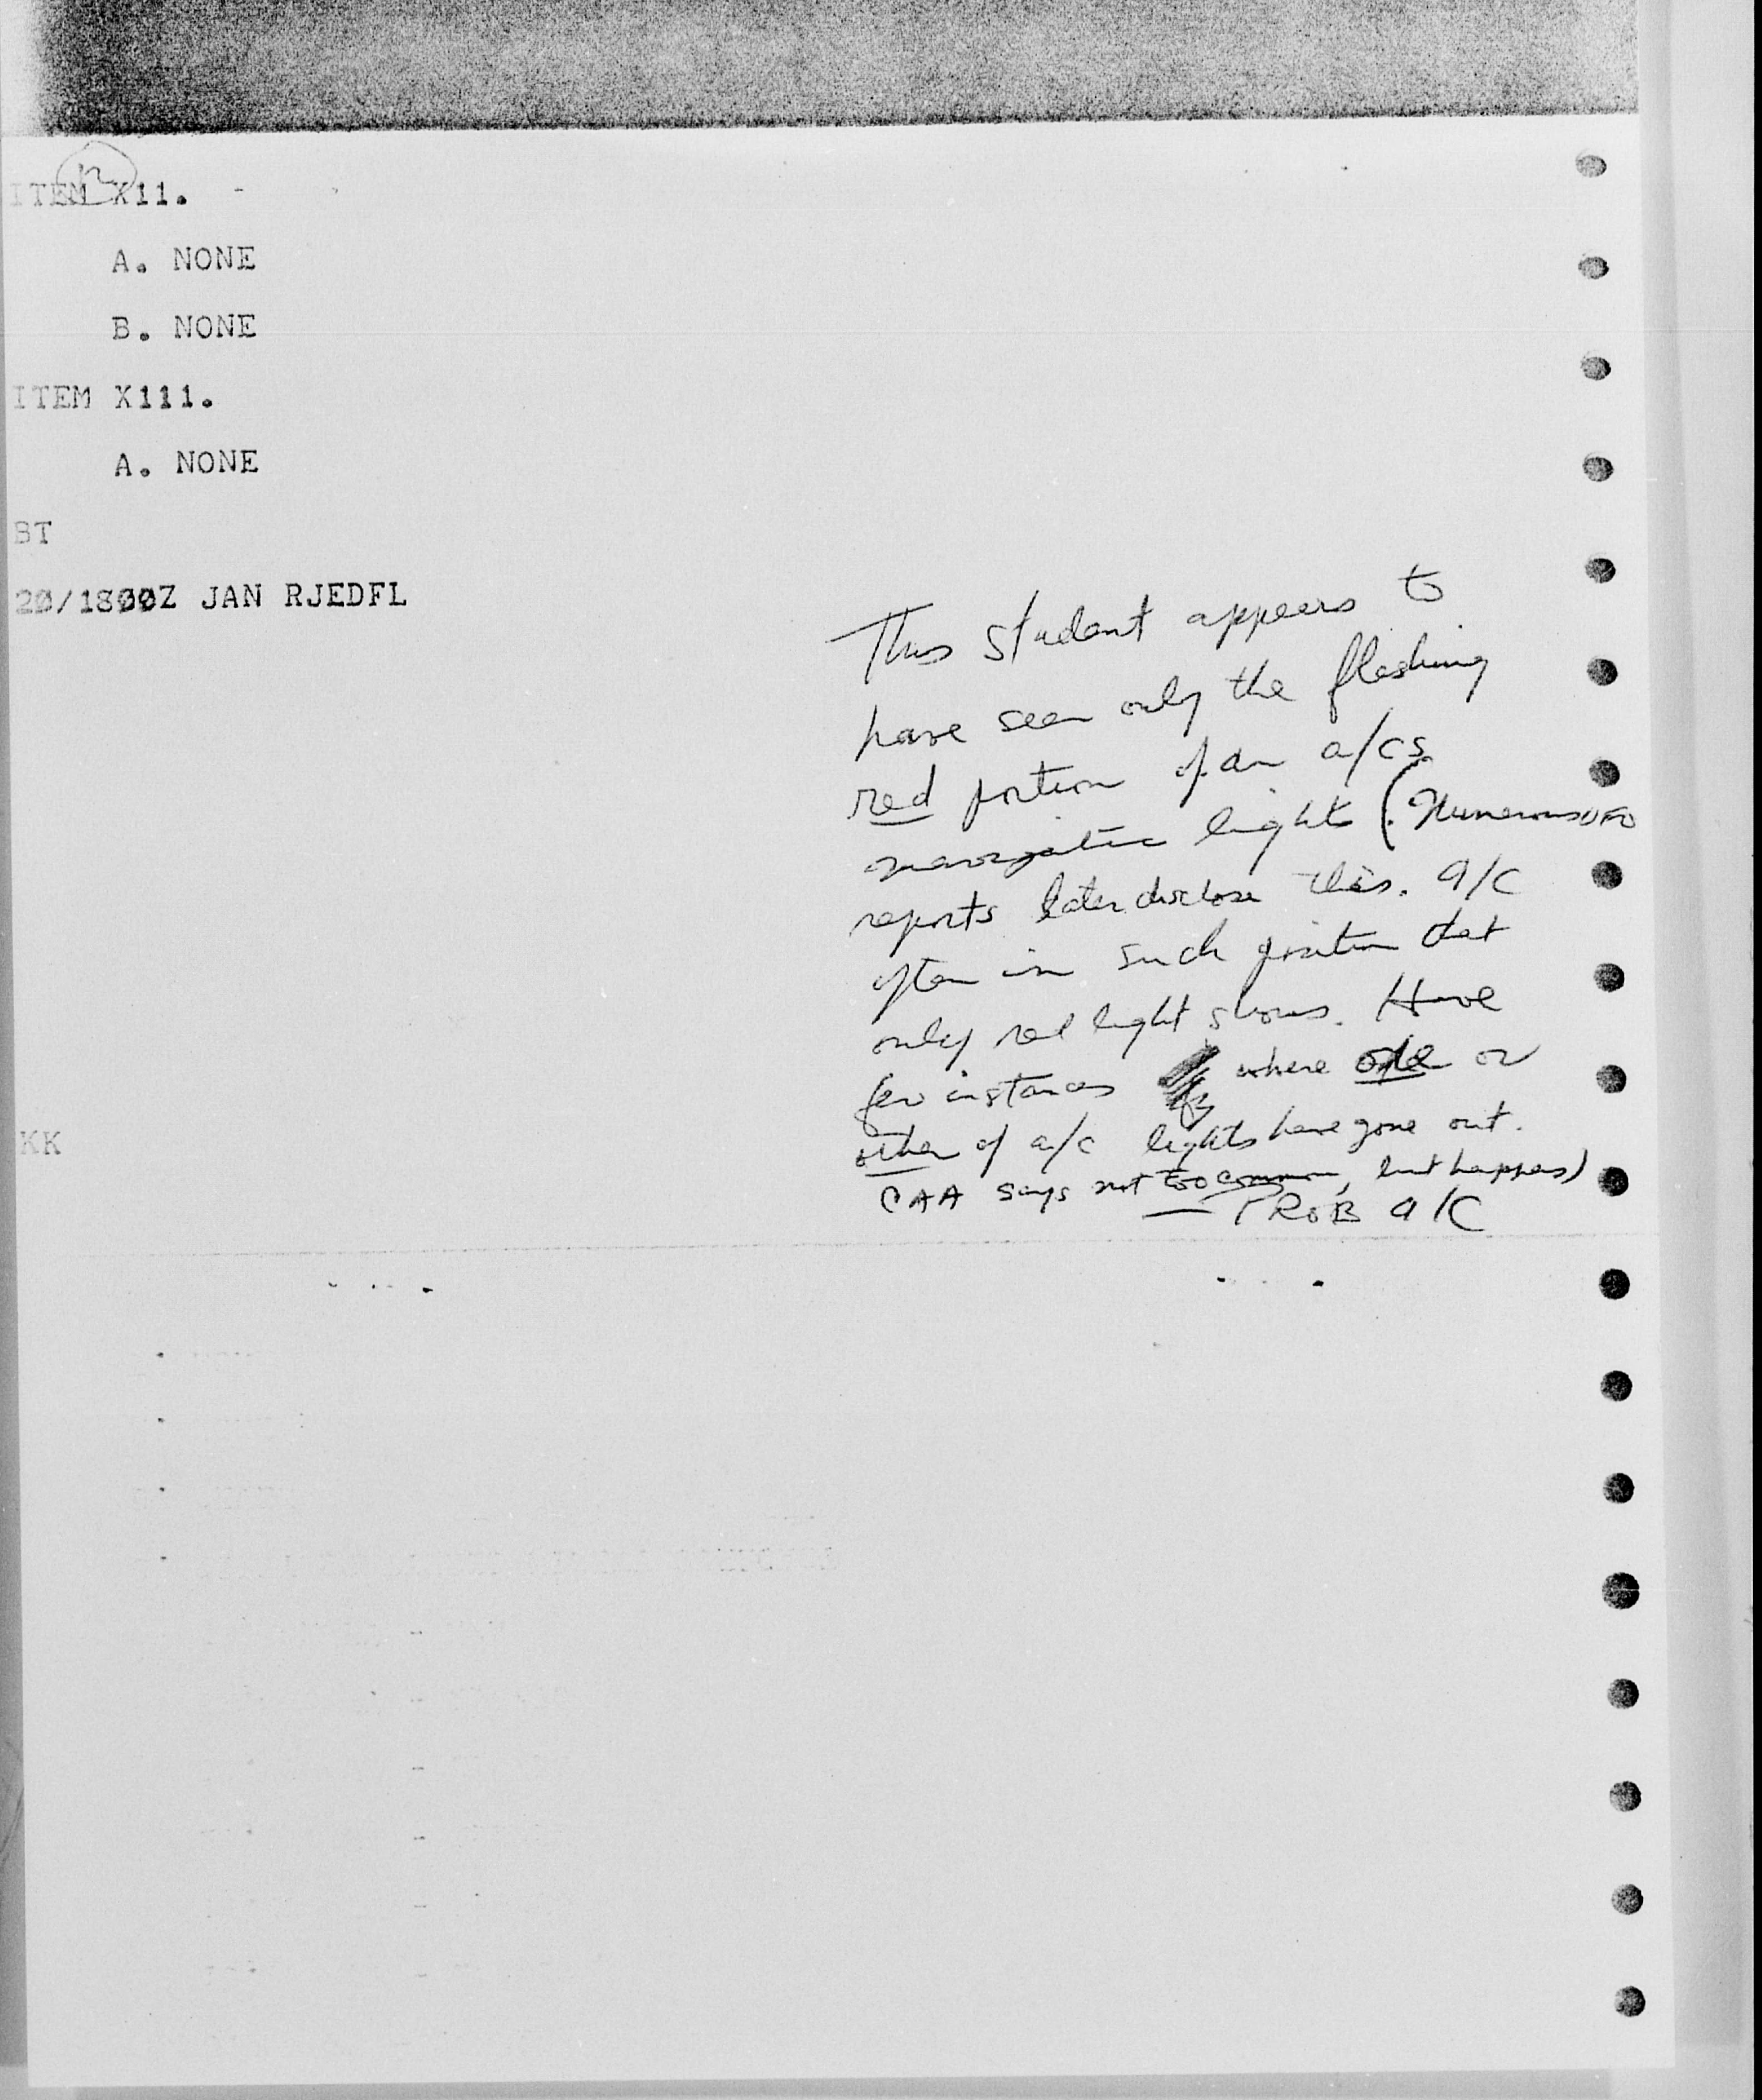 12
ITEM X11.
A. NONE
B. NONE
ITEM X111.
A. NONE
BT
20/1800Z JAN RJEDFL
This student appears to
have seen only the flashing
red portion of an a/cs
navigation lights (Numerous UFO
reports later disclose this. A/C
often in such position that
only red light shows. Have
few instances where one or
other of a/c lights have gone out.
CAA says not too common, but happens)
— PROB A/C
KK